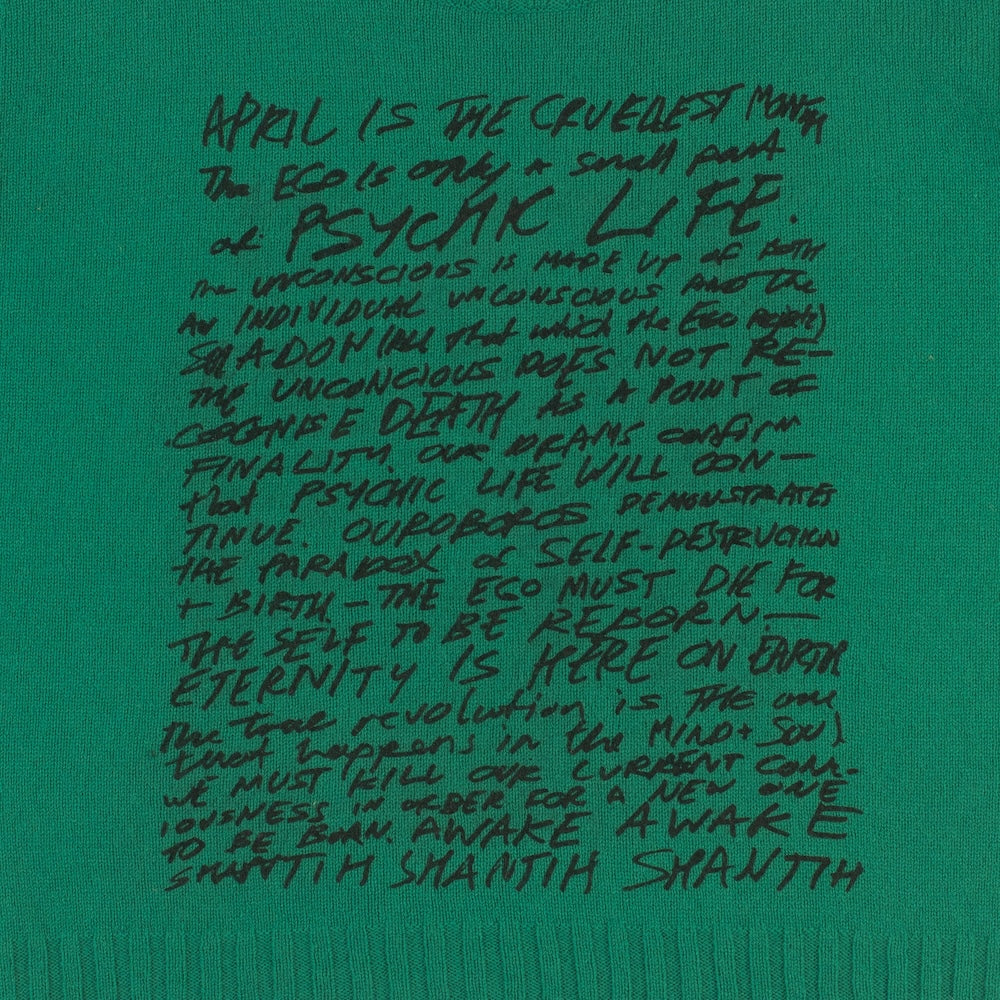 APRIL IS THE CRUELLEST MONTH
The EGO IS only a small part
of PSYCHIC LIFE.
The UNCONSCIOUS IS MADE UP of BOTH
AN INDIVIDUAL UNCONSCIOUS AND The
SHADOW (All that which the EGO rejects)
THE UNCONCIOUS DOES NOT RE-
COGNISE DEATH AS A POINT OF
FINALITY. OUR DREAMS confirm
that PSYCHIC LIFE WILL CON-
TINUE. OUROBOROS DEMONSTRATES
THE PARADOX of SELF-DESTRUCTION
+ BIRTH - THE EGO MUST DIE FOR
THE SELF TO BE REBORN.-
ETERNITY IS HERE ON EARTH
The true revolution is THE one
that happens in the MIND + SOUL
WE MUST KILL OUR CURRENT CONC-
IOUSNESS IN ORDER FOR A NEW ONE
TO BE BORN. AWAKE AWAKE
SHANTIH SHANTIH SHANTIH